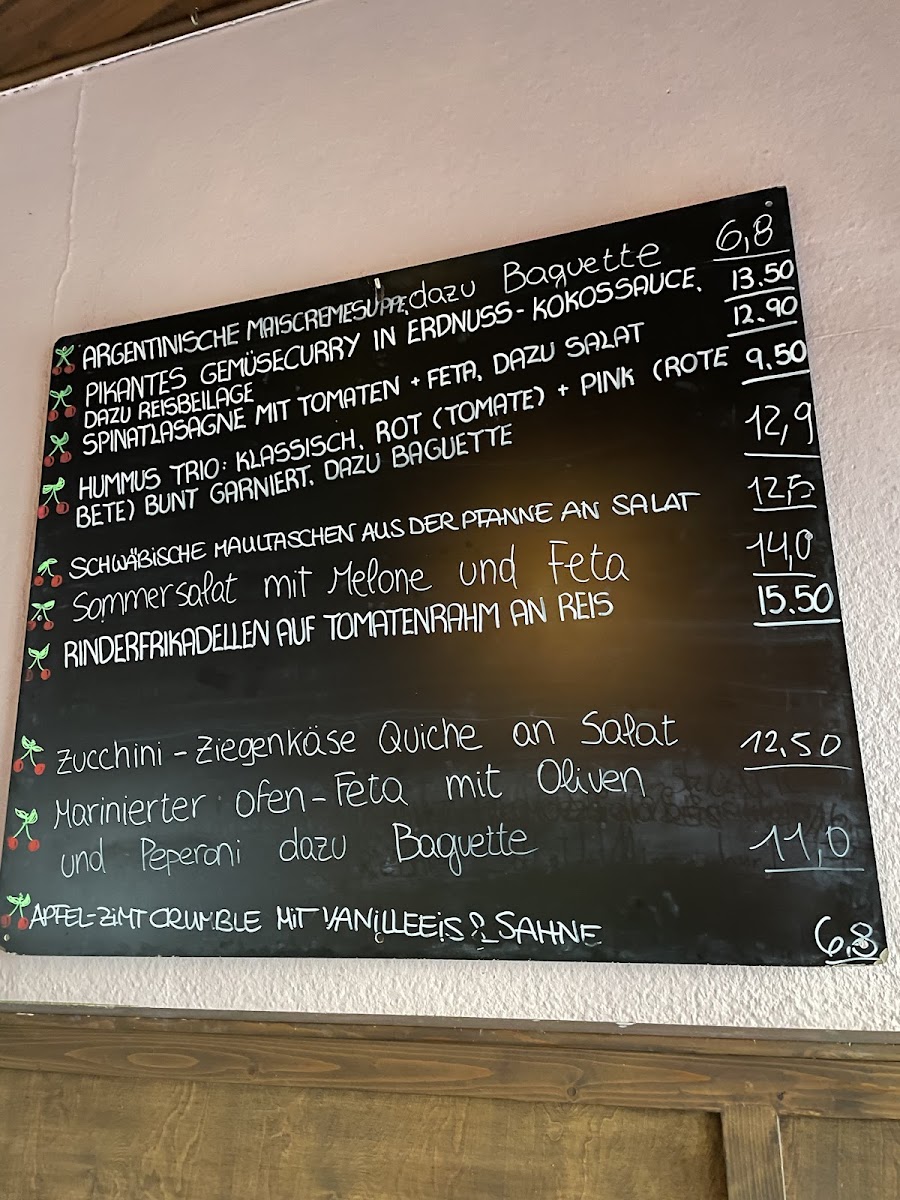 ARGENTINISCHE MAISCREMESUPPE, dazu Baguette 6,8
PIKANTES GEMÜSECURRY IN ERDNUSS-KOKOSSAUCE, 13.50
DAZU REISBEILAGE
SPINATLASAGNE MIT TOMATEN + FETA, DAZU SALAT 12.90
HUMMUS TRIO: KLASSISCH, ROT (TOMATE) + PINK (ROTE 9.50
BETE) BUNT GARNIERT, DAZU BAGUETTE 12,9
SCHWÄBISCHE MAULTASCHEN AUS DER PFANNE AN SALAT 12,5
Sommersalat mit Melone und Feta 14,0
RINDERFRIKADELLEN AUF TOMATENRAHM AN REIS 15.50
Zucchini-Ziegenkäse Quiche an Salat 12,50
Marinierter Ofen-Feta mit Oliven
und Peperoni dazu Baguette 11,0
APFEL-ZIMT CRUMBLE MIT VANILLEEIS & SAHNE 6,8